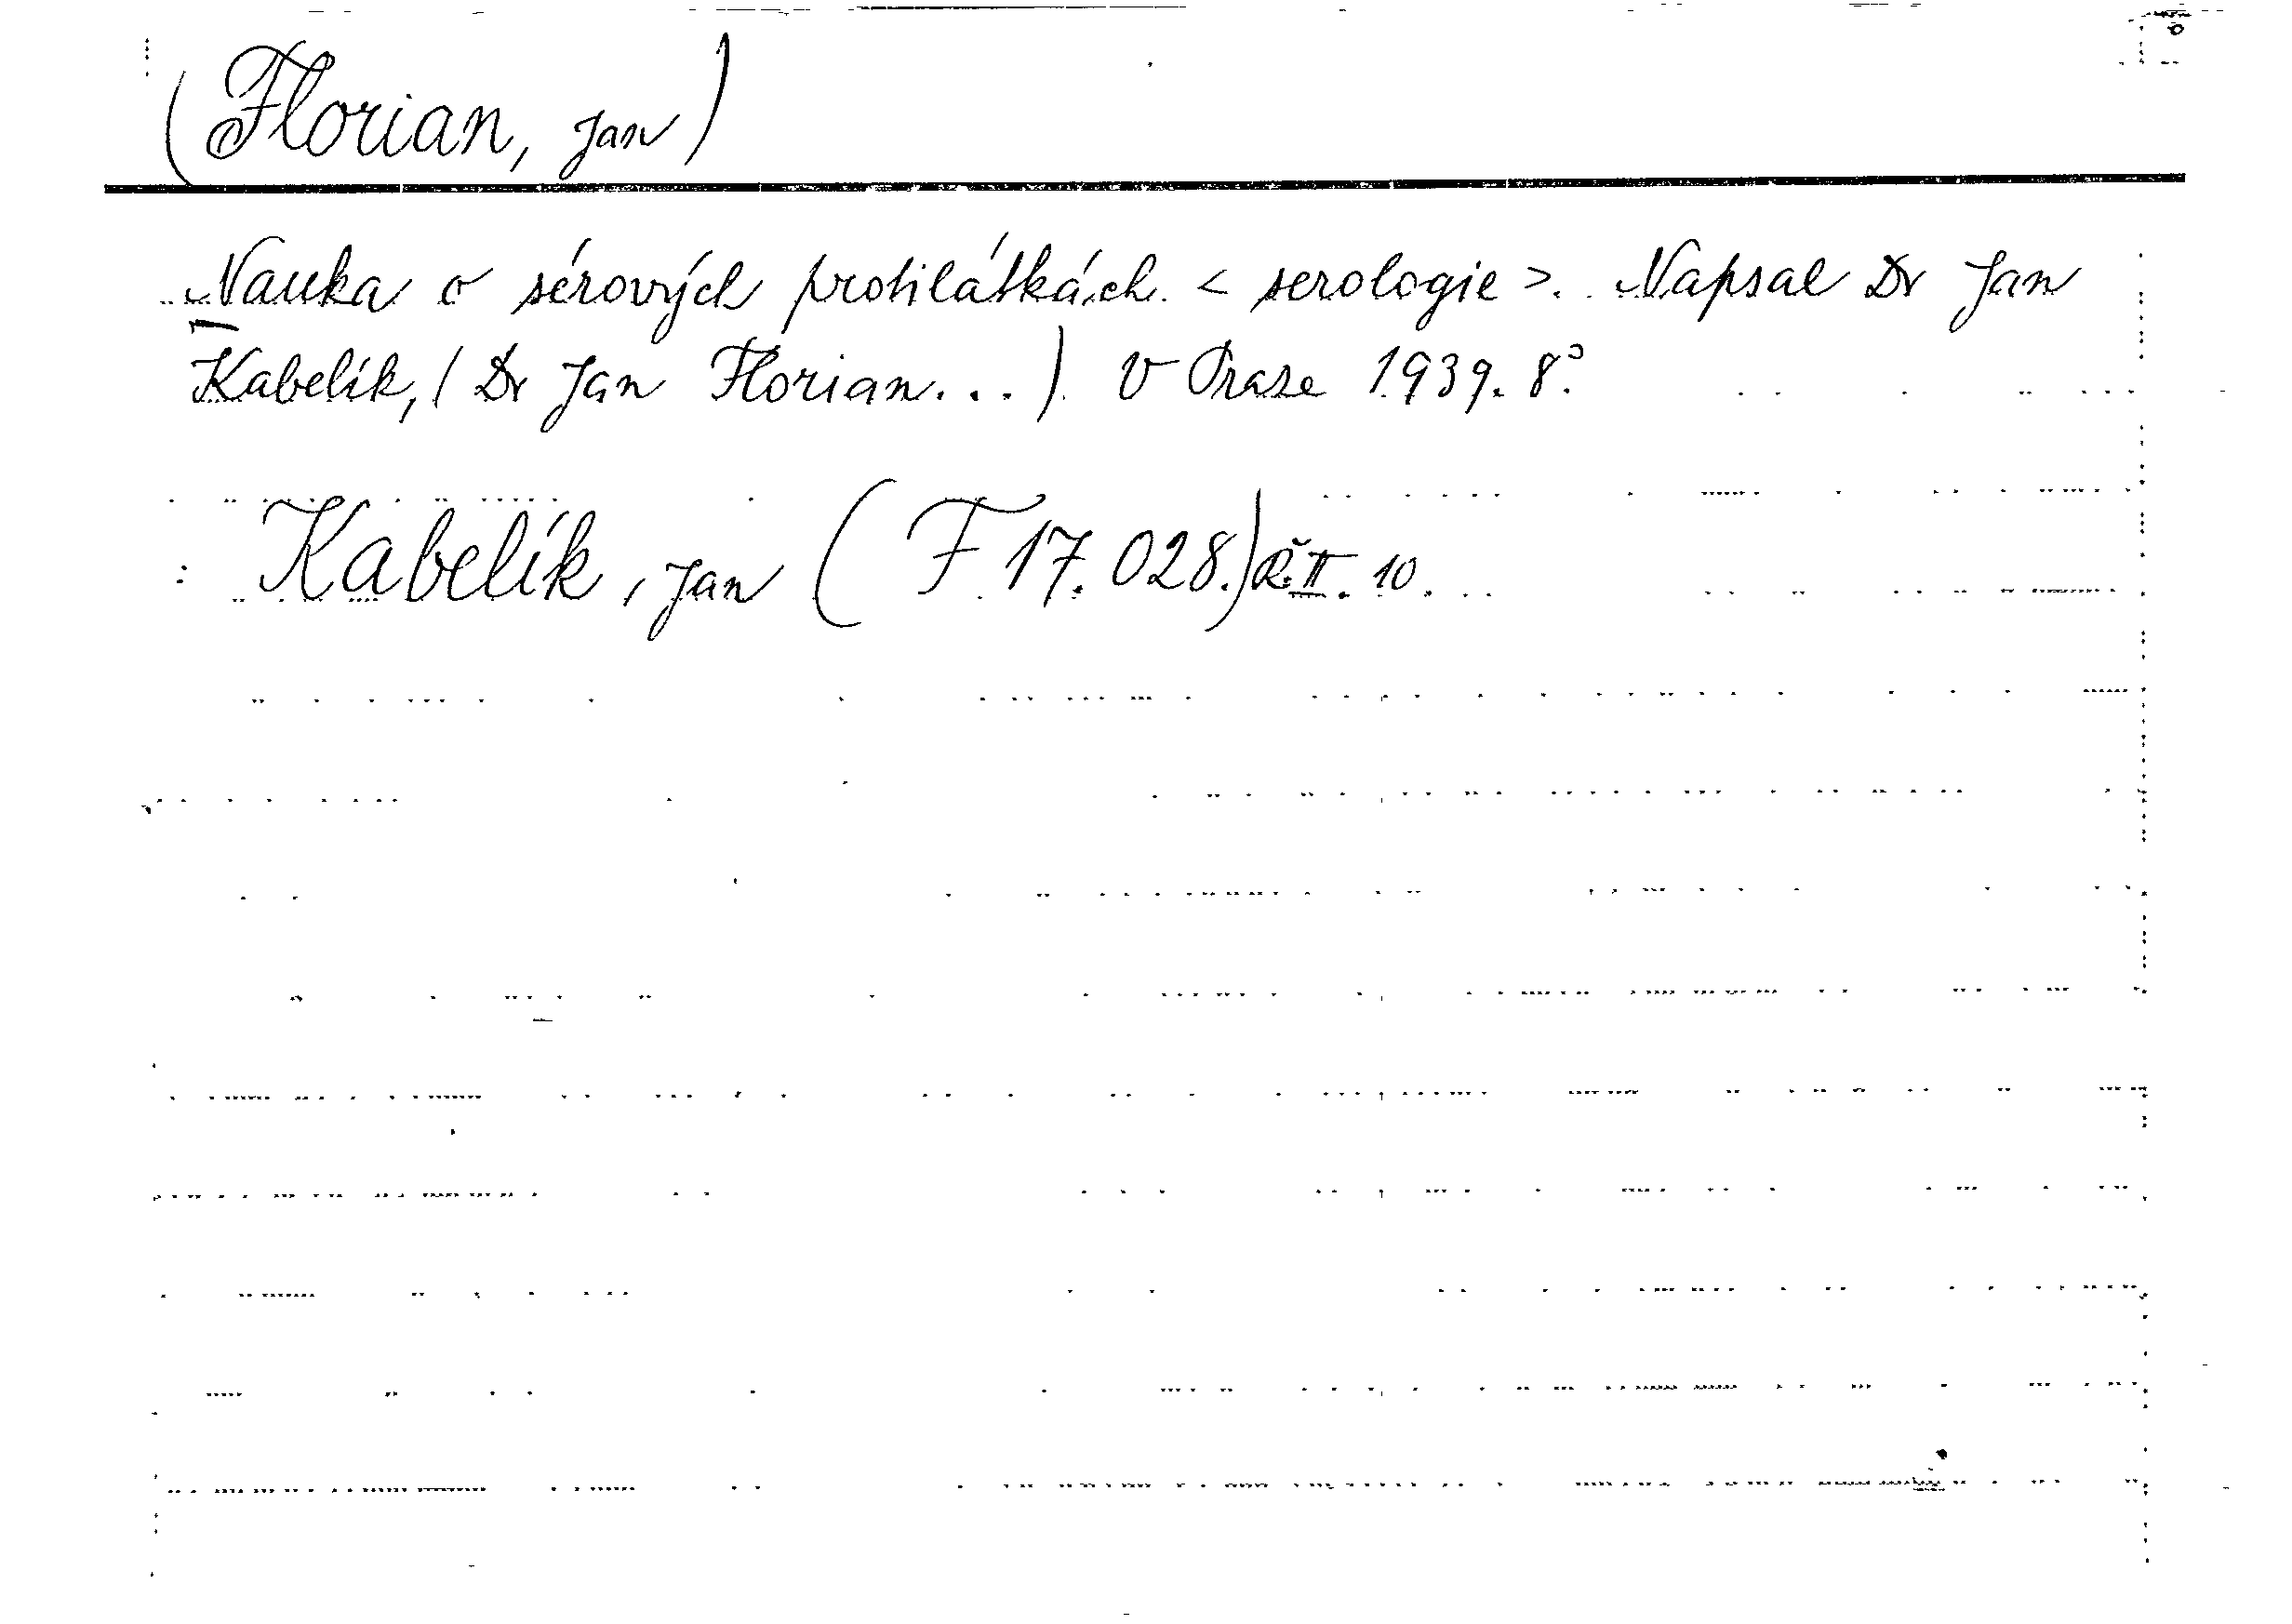 (Florian, Jan)
Nauka o sérových protilátkách < serologie >. Napsal Dr Jan
Kabelík, (Dr Jan Florian...). V Praze 1939. 8°.
Kabelík, Jan (F 17.028.) Ř. II. 10.